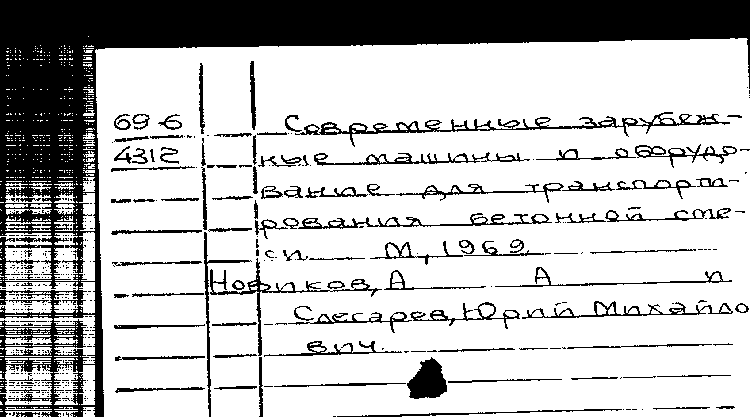 69-6 Современные зарубеж-
4312 ные машины и оборудо-
вание для транспорти-
рования бетонной сме-
си М., 1969.
Новиков, А А и
Слесарев, Юрий Михайло
вич.